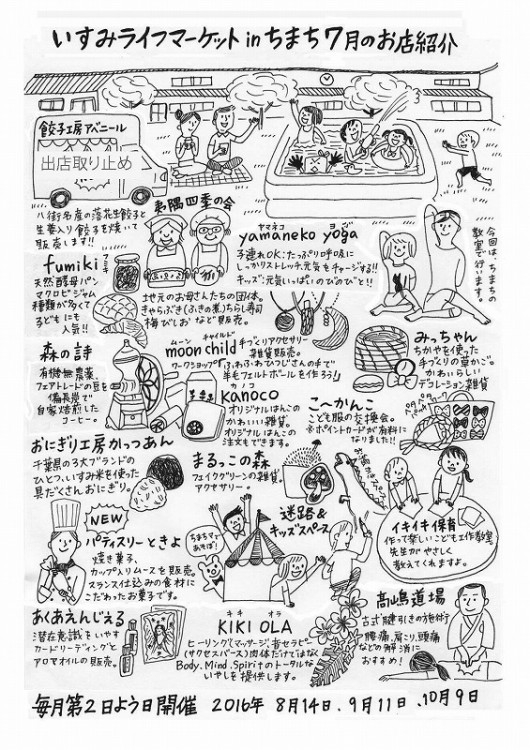 いすみライフマーケット in ちまち 7月のお店紹介
餃子工房アベニール
出店取り止め
八街名産の落花生餃子と
生姜入り餃子を焼いて
販売します!!
夷隅四季の会
地元のお母さんたちの団体。
きゃらぶき(ふきの煮)ちらし寿司
梅びしおなど販売。
ヤマネコ ヨガ
yamaneko yoga
子連れOK:たっぷり呼吸に
しっかりストレッチ、元気をチャージする!!
キッズ:元気いっぱいのびのびと!!
今回は、ちまちの
教室で行います。
フミキ
fumiki
天然酵母パン
マクロビジャム
種類が多くて
子どもにも
人気!!
森の詩
有機無農薬、
フェアトレードの豆を
備長炭で
自家焙煎した
コーヒー。
ムーン チャイルド
moon child
手づくりアクセサリー
雑貨販売。
ワークショップ:ふわふわひつじさんの手で
羊毛フェルトボールを作ろう!!
みっちゃん
ちかやを使った
手づくりの草かご。
かわいらしい
デコレーション雑貨
カノコ
kanoco
オリジナルはんこの
かわいい雑貨。
オリジナルはんこの
注文もできます。
こ〜かんこ
こども服の交換会。
※ポイントカードが有料に
なりました!!
おにぎり工房かっつあん
千葉県の3大ブランドの
ひとつ、いすみ米を使った
具だくさんおにぎり。
まるっこの森
フェイクグリーンの雑貨。
アクセサリー。
NEW
パティスリーときよ
焼き菓子、
カップ入りムースを販売。
フランス仕込みの食材に
こだわったお菓子です。
迷路&
キッズスペース
ちまちマで
あそぼ!
イキイキ保育
作って楽しいこども工作教室。
先生がやさしく
教えてくれますよ。
あくあえんじぇる
潜在意識をいやす
カードリーディングと
アロマオイルの販売。
キキ オラ
KIKI OLA
ヒーリング(マッサージ、音セラピー
(サクセスパース)肉体だけではなく
Body,Mind,Spiritのトータルな
いやしを提供します。
高嶋道場
古式腱引きの施術
腰痛、肩こり、頭痛
などの解消に
おすすめ!
毎月第2日よう日開催 2016年 8月14日、9月11日、10月9日